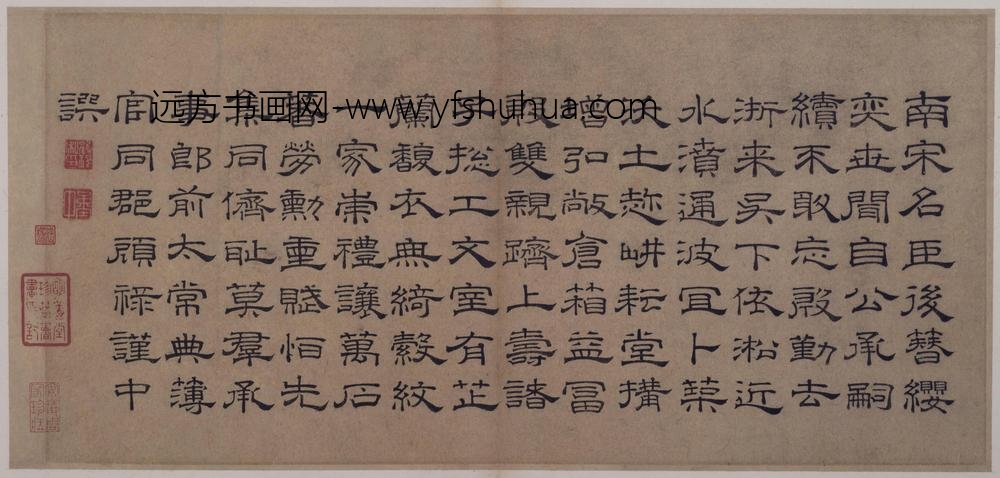 南宋名臣後簪纓
奕世聞自公承嗣
續不敢忘殷勤去
浙来吴下依淞近
水濆通波冝卜築
沃土趂畊耘堂搆
曾弘敞倉箱益冨
殷雙親躋上壽諸
子捴工文室有芷
蘭馥衣無綺縠紋
一家崇禮讓萬石
勞勳重賦怕先
同儕耻莫羣承
事郎前太常典薄
官同郡顧祿謹中
譔
远方书画网-www.yfshuhua.com